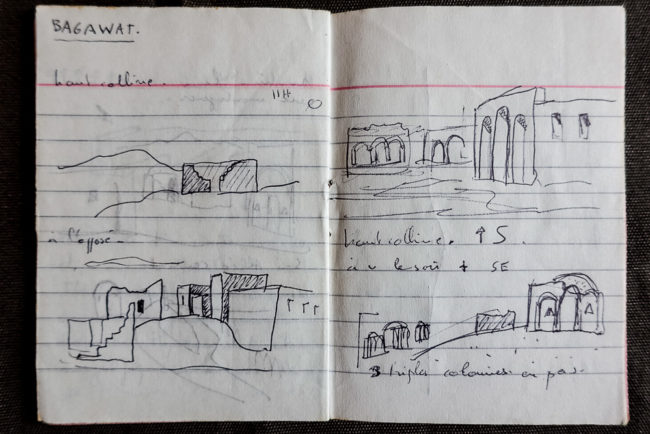 BAGAWAT.
haut colline.
11H
à l'opposé.
haut colline. ↑ S.
à v le soir + SE
3 triples colonnes